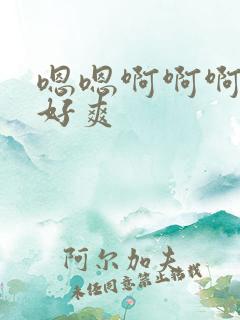 嗯嗯啊啊啊
好爽
阿尔加夫
未经同意禁止转载